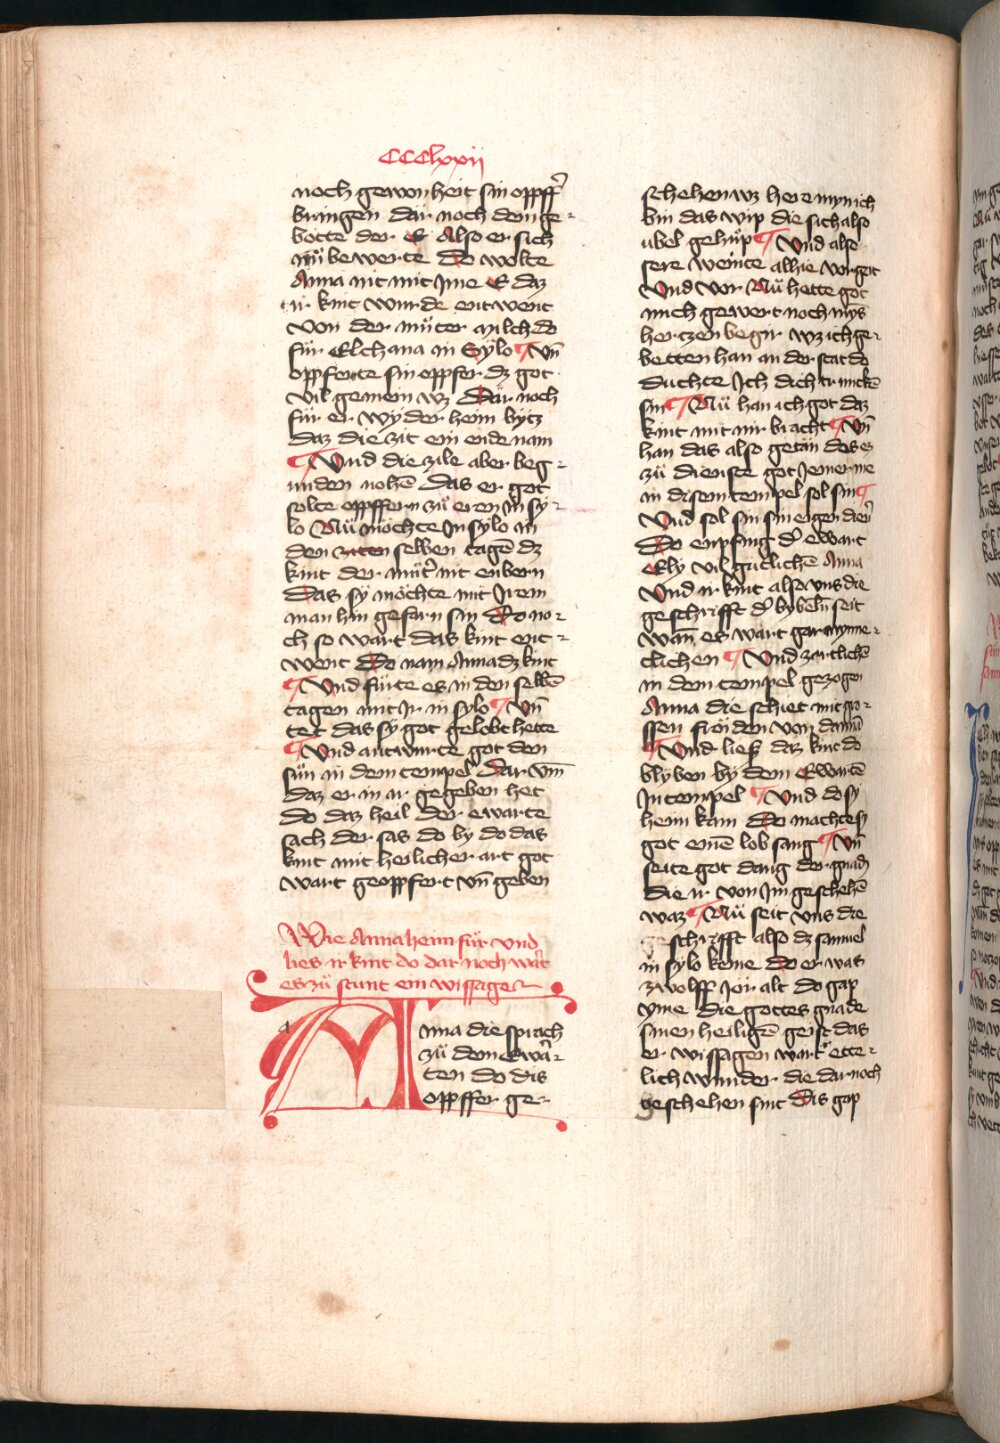 CCClxxii
noch gewonheit sin opffʼ
bringen dar noch dem ge⸗
botte der E Also er sich
nü bewerte Do wolte
Anna nit mit Jme E daz
ir kint wurde entwent
von der müter milch do
für Elchana in Sylo ¶ Vn̄
opfferte sin opffer dz got
vil genem wz Dar noch
für er wyder heim bytz
daz die zit ein ende nam
¶ Vnd die zile aber beg⸗
unden nohē Das er got
solte opffern zü eren In sy⸗
lo Nü möchte In sylo in
den ziten selben tagē dz
kint der mütʼ nit enbern
Das sy möchte mit Jrem
man hin gefarn sin Do no⸗
ch so wart das kint ent⸗
went Do nam Anna dz kint
¶ Vnd fürte es in den selbē
tagen mit Jr in sylo ¶ Vn̄
tet das sy got gelobt hette
¶ Vnd antwurte got den
sün in dem tempel Dar vm̄
daz er in ir gegeben het
do daz heil der ewarte
sach der sas do by do das
kint mit heilicher art got
wart geopffert vn̄ geben
Wie Anna heim für vnd
lies ir kint do dar noch wart
es zü stunt ein wissage
a
Anna die sprach
zü dem Ewar⸗
ten do dis
opffer ge⸗
schehen wz here myn ich
bin das wip die sich also
übel gehüp ¶ Vnd also
sere weinte alhie vor got
Vnd vor Nü hette got
mich gewert noch mȳs
hertzen begir wz ich ge⸗
betten han an der stat do
duchte Jch dich trunckē
sin ¶ Nü han ich got daz
kint mit mir bracht ¶ Vn̄
han das also getan das es
zü dienste got Jemer me
in disem tempel sol sin ¶
Vnd sol sin sin eigen dien̄
Do enpfing dʼ ewart
Ely vil gütlichen Anna
Vnd ir kint also vns die
geschrifft dʼ bybelʼn seit
wan̄ es wart gar mynne⸗
clichen ¶ Vnd zartlichē
in dem tempel gezogen
Anna die schiet mit gro⸗
ssen fröiden von dann̄
¶ Vnd ließ daz kint do
blyben by dem Ewartē
Jn tempel ¶ Vnd do sy
heim kam Do machte sy
got einē lob sang ¶ Vn̄
seite got dang der gnadē
die ir von Jm geschehē
waz ¶ Nü seit vns die
geschrifft also dz samuel
in sylo keme do er was
zwölff Jor alt do gap
yme die gottes gnade
sinen heiligē geist das
er wissagen wart ette⸗
lich wunder die dar noch
geschehen sint Dis gap